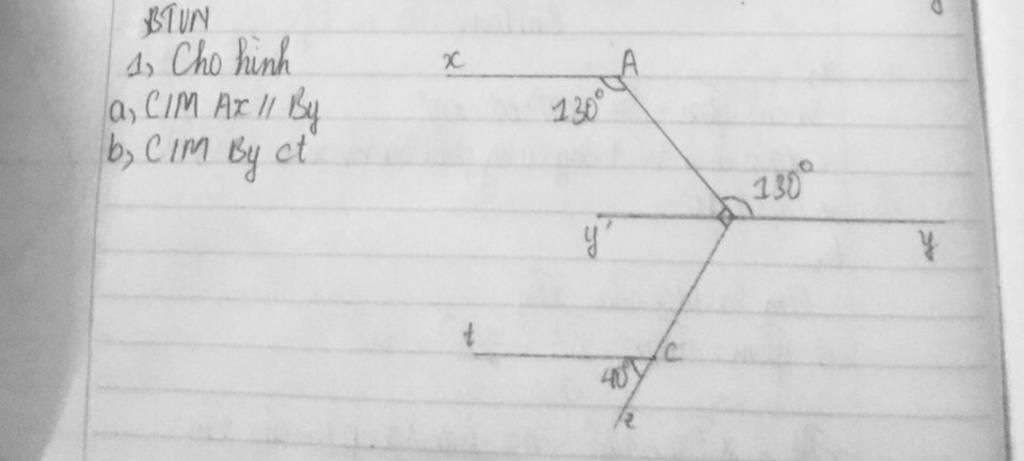 BTVN
1, Cho hình
a, C/M Ax // By
b, C/M By ct
x
A
130°
130°
y'
y
t
C
40°
z